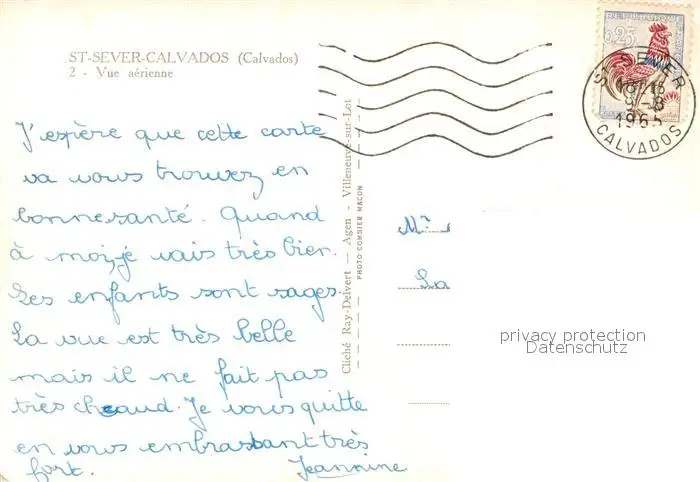 ST-SEVER-CALVADOS (Calvados)
2 - Vue aérienne
REPUBLIQUE
0,25
ST SEVER
18H15
9 -8
1965
CALVADOS
J'espère que cette carte
va vous trouvez en
bonne santé. Quand
à moi, je vais très bien.
Les enfants sont sages.
La vue est très belle
mais il ne fait pas
très chaud. Je vous quitte
en vous embrassant très
fort. Jeannine
Cliché Ray-Delvert — Agen - Villeneuve-sur-Lot
PHOTO COMBIER MACON
La
privacy protection
Datenschutz